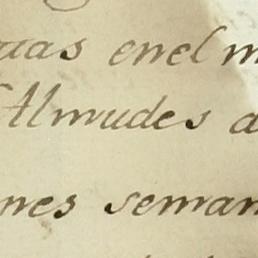 uas enel m
Almudes a
nes seman